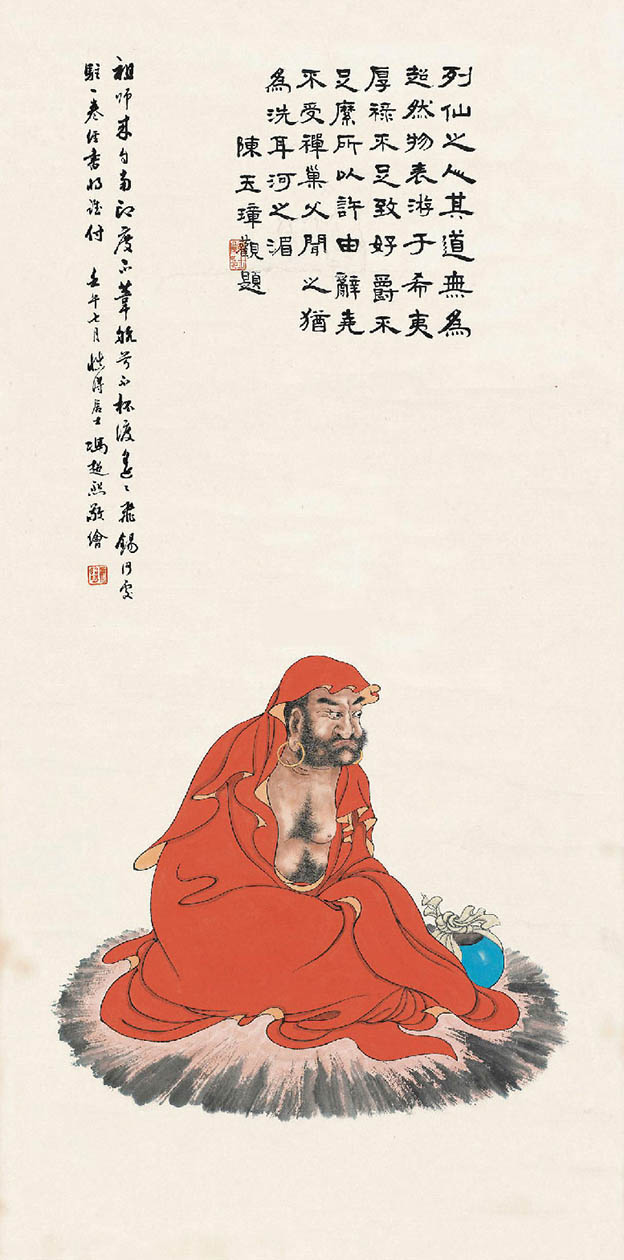 列仙之人其道無為
超然物表游于希夷
厚祿不足致好爵不
足縻所以許由辭堯
不受禪巢父聞之猶
為洗耳河之湄
陳玉璋觀題
祖師來自南印度不葦航兮不杯渡遙々飛錫何處
駐一卷經書將誰付 壬午七月慎得居士馮超然敬繪